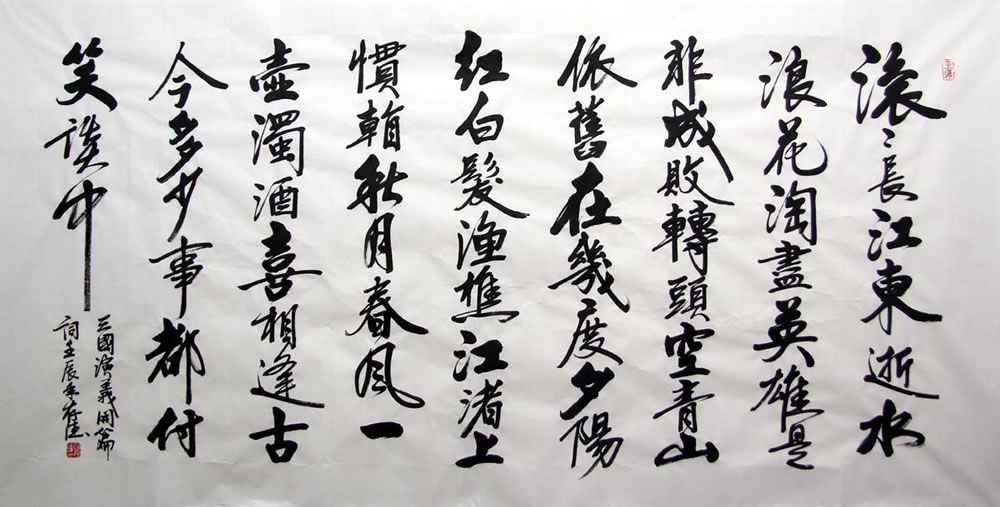 滚〻長江東逝水
浪花淘盡英雄是
非成敗轉頭空青山
依舊在幾度夕陽
红白髮渔樵江渚上
慣看秋月春风一
壺濁酒喜相逢古
今多少事都付
笑談中
三國演義開篇
词壬辰年